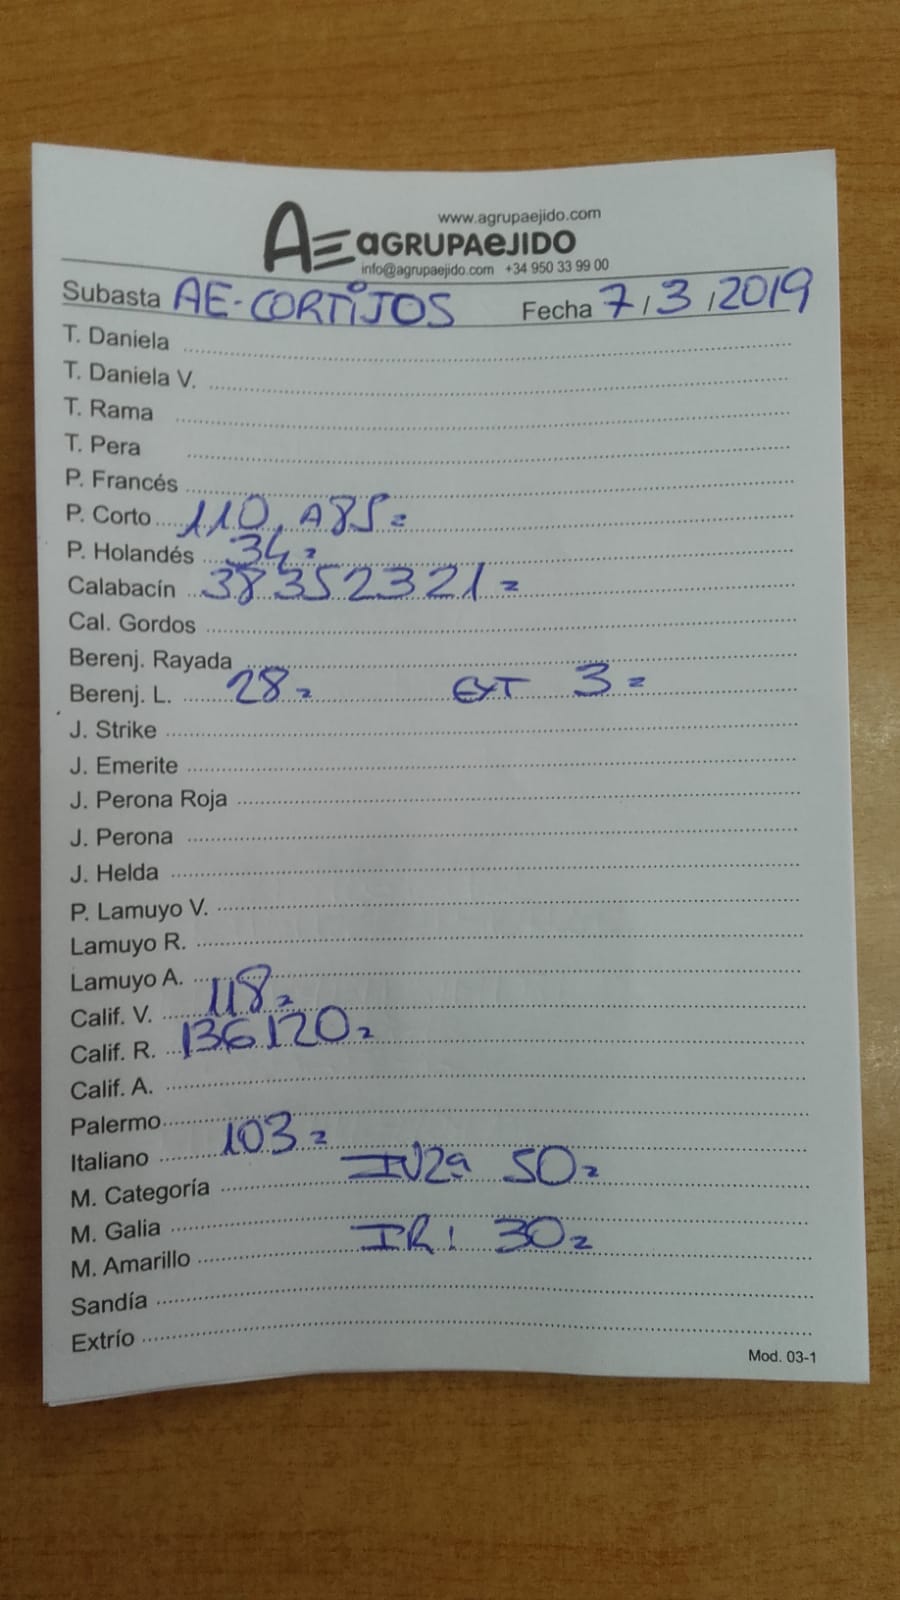 www.agrupaejido.com
AE aGRUPAeJIDO
info@agrupaejido.com +34 950 33 99 00
Subasta AE-CORTiJOS Fecha 7/3/2019
T. Daniela
T. Daniela V.
T. Rama
T. Pera
P. Francés
P. Corto 110, A85=
P. Holandés 34=
Calabacín 38352321=
Cal. Gordos
Berenj. Rayada
Berenj. L. 28= EXT 3=
J. Strike
J. Emerite
J. Perona Roja
J. Perona
J. Helda
P. Lamuyo V.
Lamuyo R.
Lamuyo A.
Calif. V. 118=
Calif. R. 136120=
Calif. A.
Palermo
Italiano 103=
M. Categoría IV2ª 50=
M. Galia
M. Amarillo IR! 30=
Sandía
Extrío
Mod. 03-1